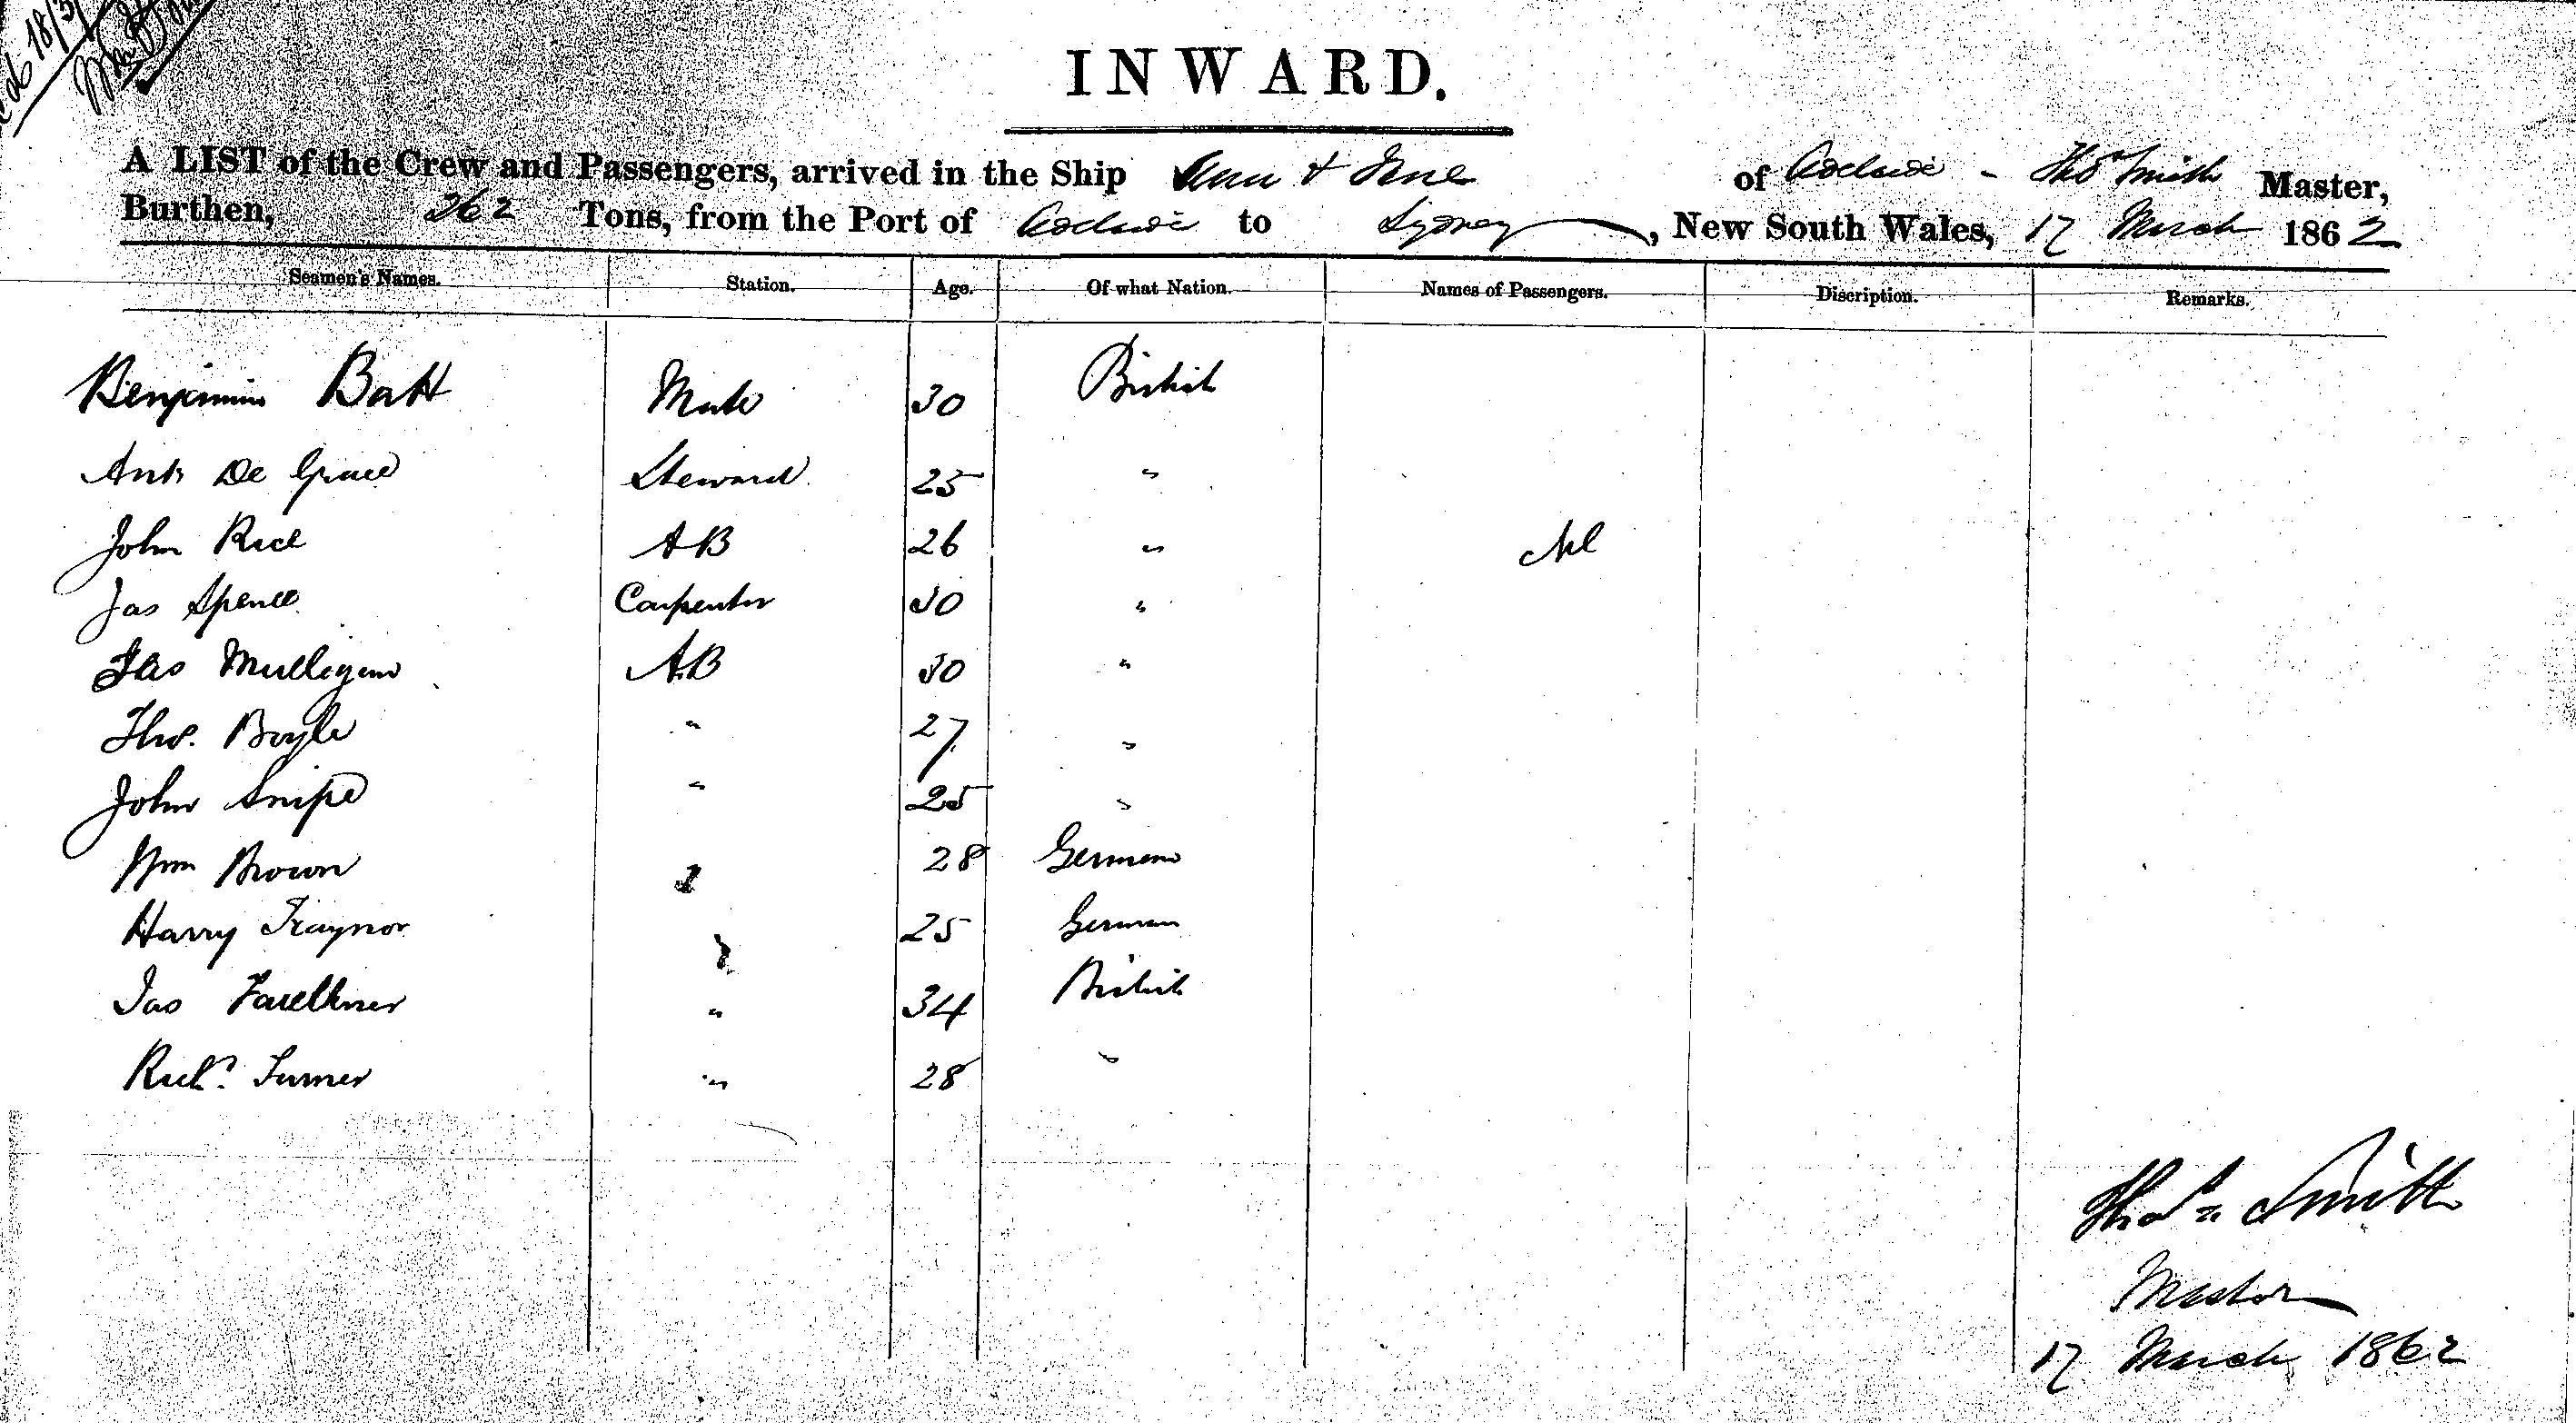 18/3
INWARD.
A LIST of the Crew and Passengers, arrived in the Ship Ann & Jane of Adelaide - Thos Smith Master,
Burthen, 262 Tons, from the Port of Adelaide to Sydney, New South Wales, 17 March 1862
Seamen's Names. Station. Age. Of what Nation. Names of Passengers. Discription. Remarks.
Benjamin Batt Mate 30 British
Ant De Grace Steward 25 "
John Rice AB 26 " Nil
Jas Spence Carpenter 30 "
Jas Mulligan AB 30 "
Thos. Boyle " 27 "
John Snipe " 25 "
Wm Brown " 28 German
Harry Traynor " 25 German
Jas Faulkner " 34 British
Richd. Turner " 28 "
Thos Smith
Master
17 March 1862